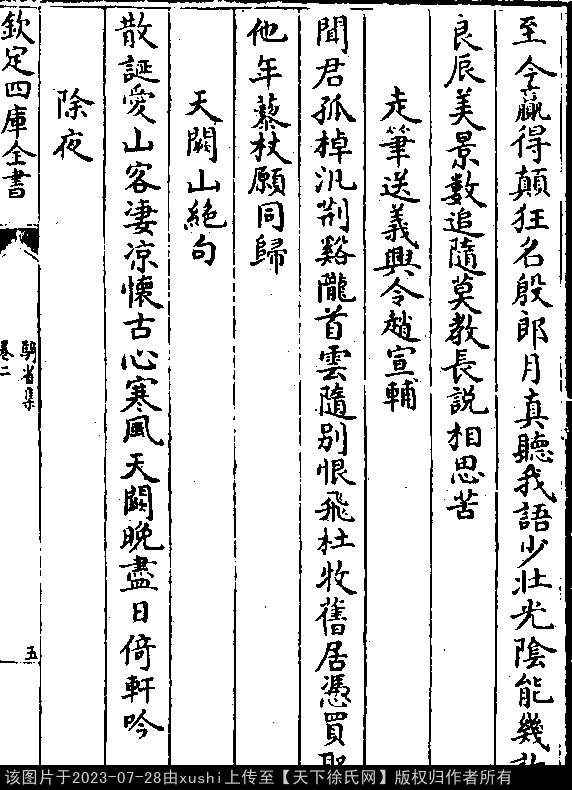 至今贏得顛狂名殷郎月真聽我語少壯光陰能幾許
良辰美景數追隨莫教長說相思苦
走筆送義興令趙宣輔
聞君孤棹汎荆谿隴首雲隨别恨飛杜牧舊居憑買取
他年藜杖願同歸
天闕山絶句
散誕愛山客凄凉懐古心寒風天闕晚盡日倚軒吟
除夜
欽定四庫全書
騎省集
卷二
五
该图片于2023-07-28由xushi上传至【天下徐氏网】版权归作者所有